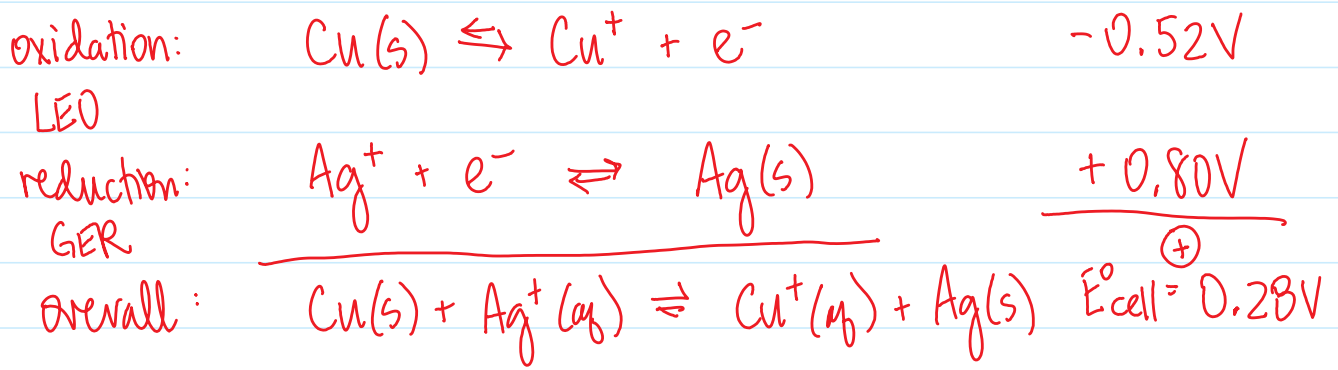 oxidation: Cu(s) ⇆ Cu⁺ + e⁻ -0.52V
LEO
reduction: Ag⁺ + e⁻ ⇌ Ag(s) +0.80V
GER
+
overall: Cu(s) + Ag⁺(aq) ⇌ Cu⁺(aq) + Ag(s) E°cell = 0.28V